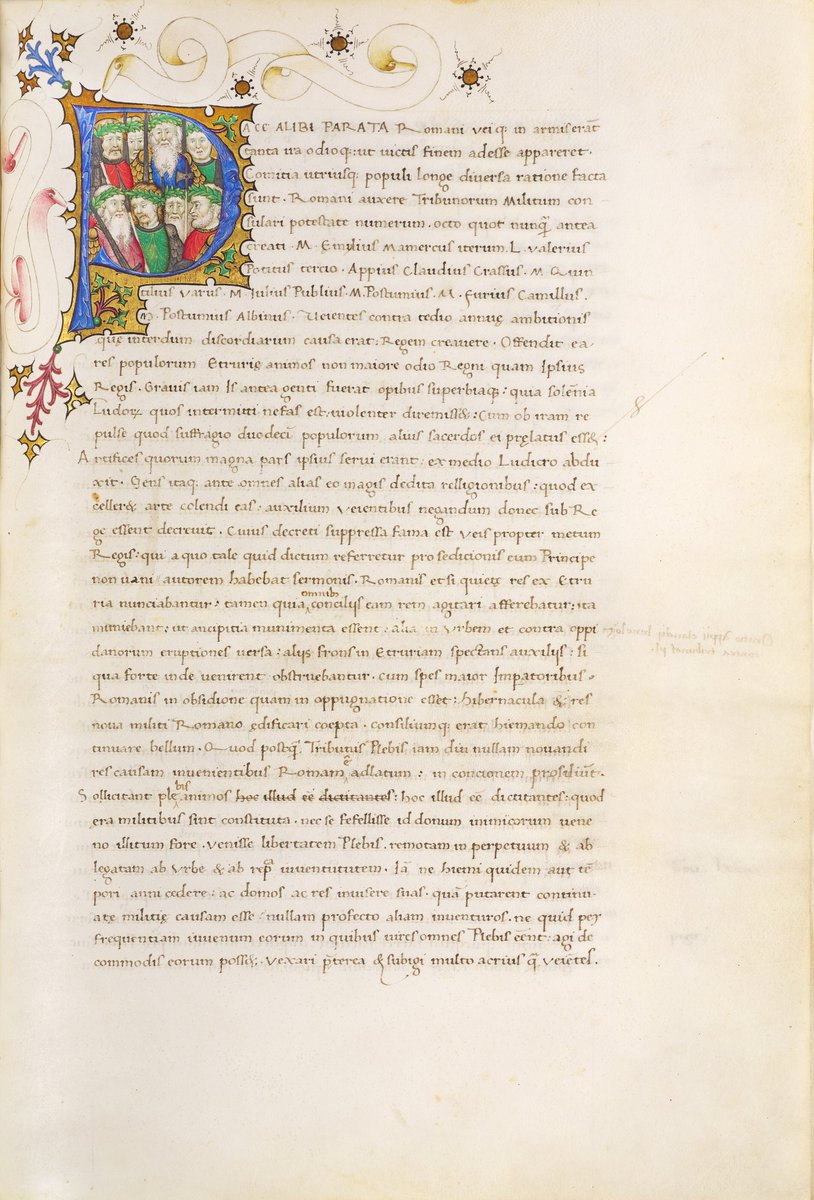 PACE ALIBI PARATA Romani veiq; in armis erāt
tanta ira odioq; ut victis finem adesse appareret.
Comitia utriusq; populi longe diversa ratione facta
sunt. Romani auxere Tribunorum Militum con
sulari potestate numerum. octo quot nunq̄ antea
creati. M. Emilius Mamercus iterum. L. Valerius
Potitus tercio. Appius Claudius Crassus. M. Quin
tilius Varus. M. Iulius Publius. M. Postumius. M. Furius Camillus.
M. Postumius Albinus. Veientes contra tedio annuę ambitionis
quę interdum discordiarum causa erat: Regem creavere. Offendit ea
res populorum Etrurię animos non maiore odio Regni quam Ipsius
Regis. Gravis iam Is antea genti fuerat opibus superbiaq; quia solēnia
Ludoꝝ quos intermitti nefas est: violenter diremiss&: Cum ob iram re
pulsę quod suffragio duodecī populorum alius sacerdos ei pręlatus ess&:
Artifices quorum magna pars ipsius servi erant: ex medio Ludicro abdu
xit. Gens itaq; ante omnes alias eo magis dedita relligionibus: quod ex
celler& arte colendi eas: auxilium veientibus negandum donec sub Re
ge essent decrevit. Cuius decreti suppressa fama est veis propter metum
Regis: qui a quo tale quid dictum referretur pro sedicionis eum Principe
non vani autorem habebat sermonis. Romanis etsi quietę res ex Etru
ria nunciabantur: tamen quia omnib conciliis eam rem agitari afferebatur: ita
muniebant: ut ancipitia munimenta essent: alia in Urbem et contra oppi
danorum eruptiones versa: aliis frons in Etruriam spectans auxiliis: si
qua forte inde venirent obstruebantur. Cum spes maior Imperatoribus
Romanis in obsidione quam in oppugnatione esset: hibernacula & res
nova militi Romano ędificari coepta. consiliumq; erat hiemando con
tinuare bellum. Quod postq̄ Tributus Plebis iam diu nullam novandi
res causam invenientibus Romam ē adlatum: in concionem prosiliūt.
Sollicitant plebis animos hoc illud eē dictitantes: hoc illud eē dictitantes: quod
era militibus sint constituta. nec se fefellisse id donum inimicorum vene
no illitum fore. venisse libertatem Plebis. remotam in perpetuum & ab
legatam ab Urbe & ab rep̄ iuventutem. Iā ne hiemi quidem aut tē
pori anni cedere: ac domos ac res invisere suas. quā putarent continu
atę militię causam esse: nullam profecto aliam inventuros. ne quid per
frequentiam iuvenum eorum in quibus vires omnes Plebis eēnt: agi de
commodis eorum poss&. Vexari p̄terea & subigi multo acrius q̄ veiētes.